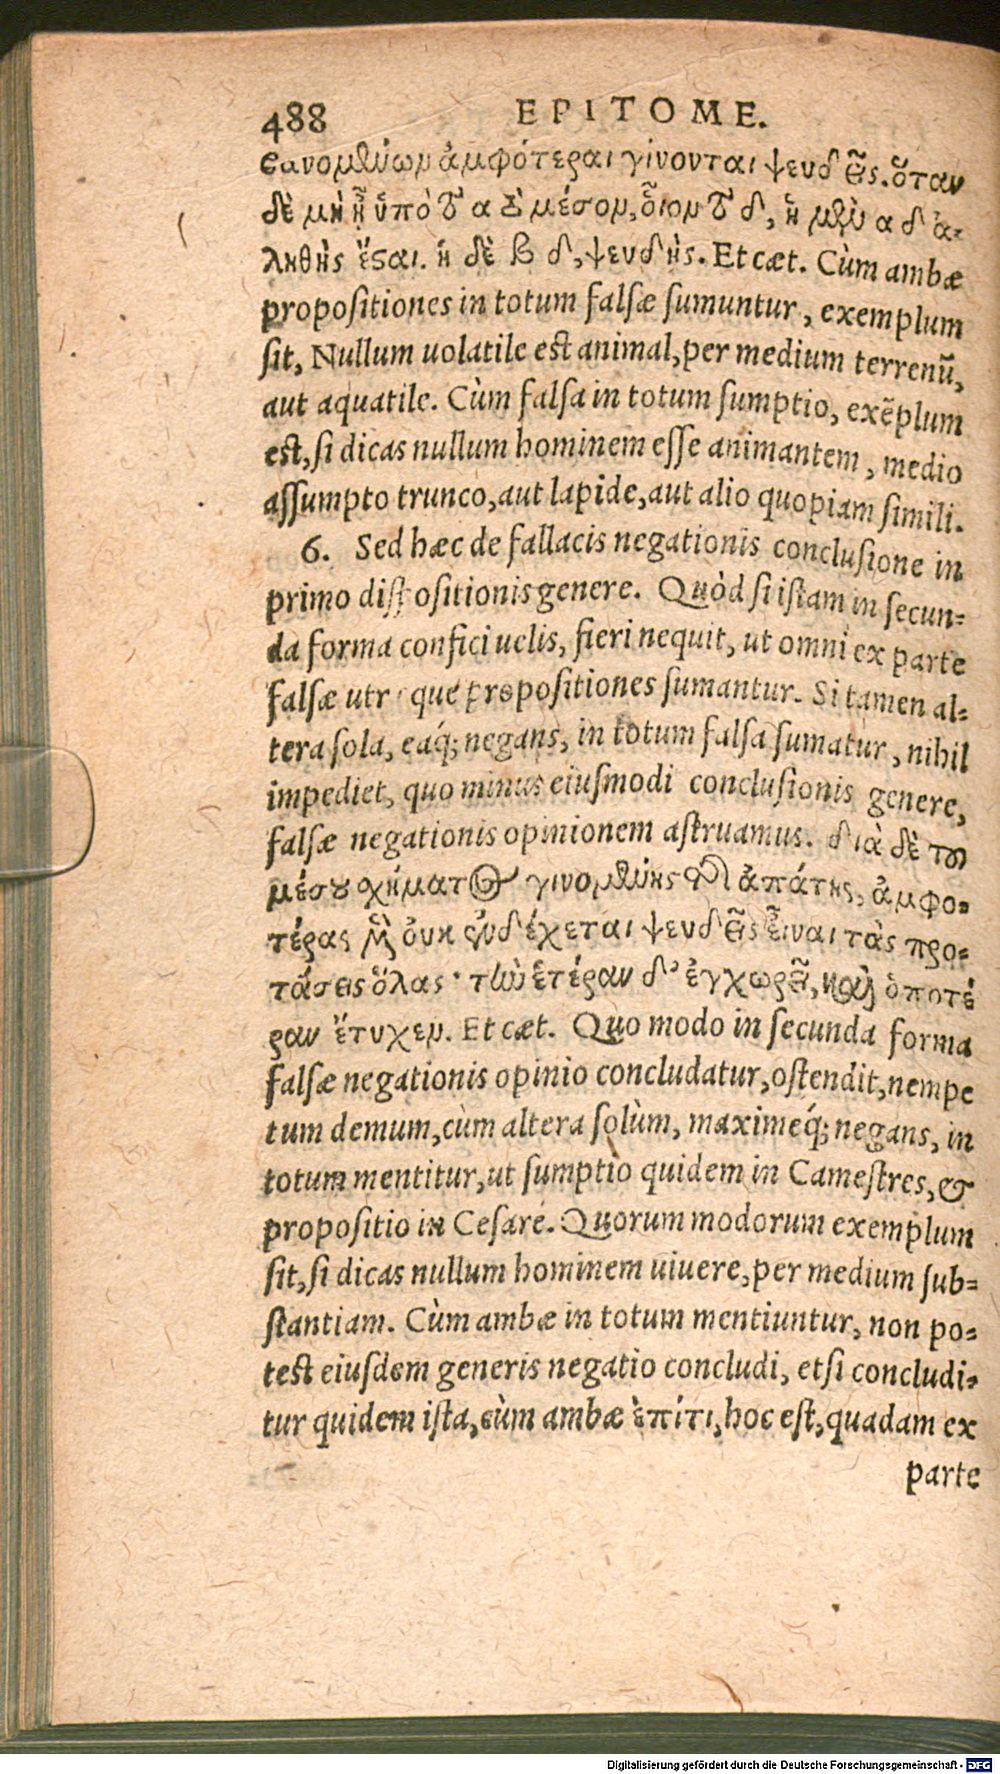 488 EPITOME.
βανομένων ἀμφότεραι γίνονται ψευδεῖς. ὅταν
δὲ μὴ ᾖ ὑπὸ τὸ α τὸ μέσον, οἷον τὸ δ, ἡ μὲν α δ ἀ-
ληθὴς ἔσται. ἡ δὲ β δ, ψευδής. Et cæt. Cùm ambæ
propositiones in totum falsæ sumuntur, exemplum
sit, Nullum uolatile est animal, per medium terrenũ,
aut aquatile. Cùm falsa in totum sumptio, exẽplum
est, si dicas nullum hominem esse animantem, medio
assumpto trunco, aut lapide, aut alio quopiam simili.
6. Sed hæc de fallacis negationis conclusione in
primo dispositionis genere. Quòd si istam in secun-
da forma confici uelis, fieri nequit, ut omni ex parte
falsæ utræque propositiones sumantur. Si tamen al-
tera sola, eaq́; negans, in totum falsa sumatur, nihil
impediet, quo minus eiusmodi conclusionis genere,
falsæ negationis opinionem astruamus. διὰ δὲ τοῦ
μέσου σχήματος γινομένης τῆς ἀπάτης, ἀμφο-
τέρας μὲν οὐκ ἐνδέχεται ψευδεῖς εἶναι τὰς προ-
τάσεις ὅλας· τὴν ἑτέραν δ' ἐγχωρεῖ, καὶ ὁποτέ
ραν ἔτυχεν. Et cæt. Quo modo in secunda forma
falsæ negationis opinio concludatur, ostendit, nempe
tum demum, cùm altera solùm, maximeq́; negans, in
totum mentitur, ut sumptio quidem in Camestres, &
propositio in Cesare. Quorum modorum exemplum
sit, si dicas nullum hominem uiuere, per medium sub-
stantiam. Cùm ambæ in totum mentiuntur, non po-
test eiusdem generis negatio concludi, etsi concludi-
tur quidem ista, cùm ambæ ἐπίτι, hoc est, quadam ex
parte
Digitalisierung gefördert durch die Deutsche Forschungsgemeinschaft - DFG